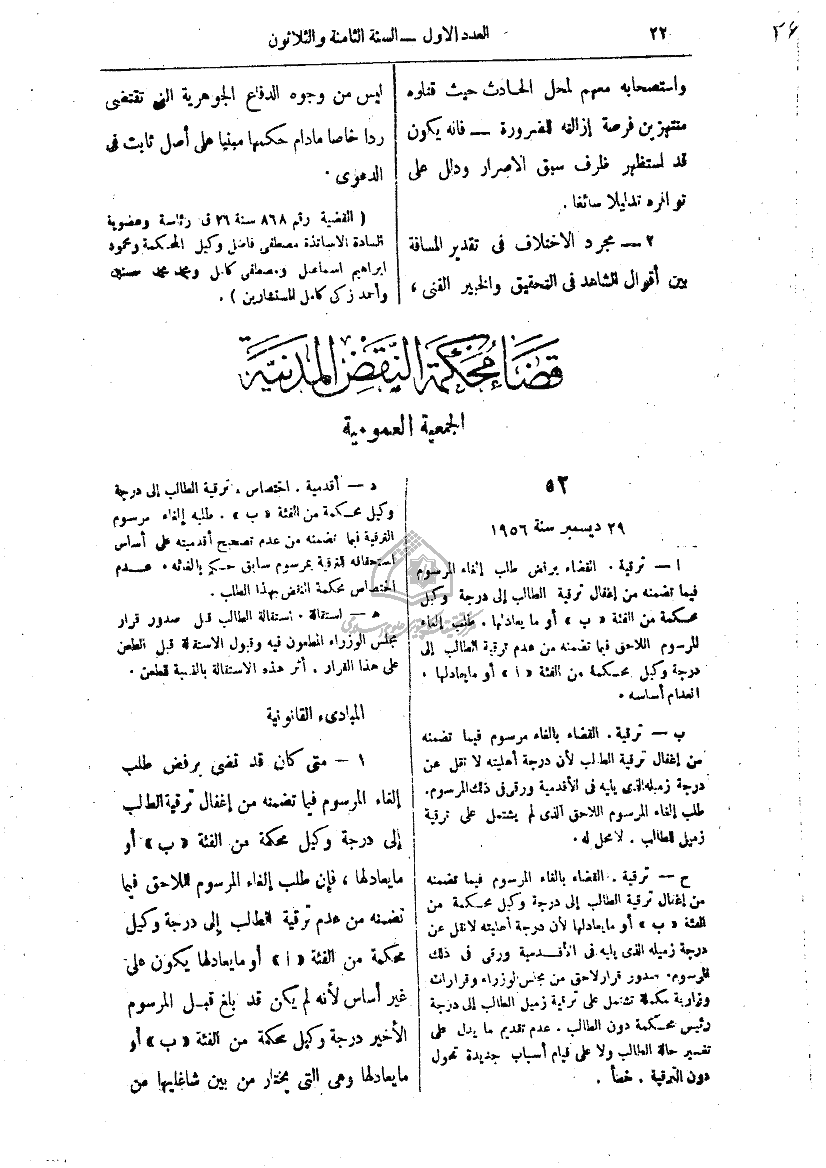 ٢٢
العدد الاول — السنة الثامنة والثلاثون
٢٦
واستصحابه معهم لمحل الحادث حيث قتلوه
منتهزين فرصة إزالته للضرورة — فانه يكون
قد استظهر ظرف سبق الاصرار ودلل على
توافره تدليلا سائغا .
٢ — مجرد الاختلاف فى تقدير المسافة
بين أقوال المشاهد فى التحقيق والخبير الفنى ،
ليس من وجوه الدفاع الجوهرية التى تقتضى
ردا خاصا مادام حكمها مبنيا على أصل ثابت فى
الدعوى .
( القضية رقم ٨٦٨ سنة ٢٦ ق رئاسة وعضوية
السادة الاساتذة مصطفى فاضل وكيل المحكمة ومحمود
ابراهيم اسماعيل ومصطفى كامل ومحمد محمد حسنين
وأحمد زكى كامل المستشارين ) .
قضاء محكمة النقض المدنية
الجمعية العمومية
٥٢
٢٩ ديسمبر سنة ١٩٥٦
ا — ترقية . القضاء برفض طلب إلغاء المرسوم
فيما تضمنه من إغفال ترقية الطالب إلى درجة وكيل
محكمة من الفئة « ب » أو ما يعادلها . طلب إلغاء
المرسوم اللاحق فيما تضمنه من عدم ترقية الطالب إلى
درجة وكيل محكمة من الفئة « ا » أو مايعادلها .
انعدام أساسه .
ب — ترقية . القضاء بالغاء مرسوم فيما تضمنه
من إغفال ترقية الطالب لأن درجة أهليته لا تقل عن
درجة زميله الذى يليه فى الأقدمية ورقى فى ذلك المرسوم .
طلب إلغاء المرسوم اللاحق الذى لم يشتمل على ترقية
زميل الطالب . لا محل له .
ح — ترقية . القضاء بالغاء المرسوم فيما تضمنه
من إغفال ترقية الطالب إلى درجة وكيل محكمة من
الفئة « ب » أو مايعادلها لأن درجة أهليته لاتقل عن
درجة زميله الذى يليه فى الأقدمية ورقى فى ذلك
المرسوم . صدور قرار لاحق من مجلس الوزراء وقرارات
وزارية مكملة تشتمل على ترقية زميل الطالب إلى درجة
رئيس محكمة دون الطالب . عدم تقديم ما يدل على
تغيير حالة الطالب ولا على قيام أسباب جديدة تحول
دون الترقية . خطأ .
د — أقدمية . اختصاص . ترقية الطالب إلى درجة
وكيل محكمة من الفئة « ب » . طلبه إلغاء مرسوم
الترقية فيما تضمنه من عدم تصحيح أقدميته على أساس
استحقاقه للترقية بمرسوم سابق حكم بالغائه . عدم
اختصاص محكمة النقض بهذا الطلب .
ه — استقالة . استقالة الطالب قبل صدور قرار
مجلس الوزراء المطعون فيه وقبول الاستقالة قبل الطعن
على هذا القرار . أثر هذه الاستقالة بالنسبة للطعن .
المبادىء القانونية
١ — متى كان قد قضى برفض طلب
إلغاء المرسوم فيما تضمنه من إغفال ترقية الطالب
إلى درجة وكيل محكمة من الفئة « ب » أو
مايعادلها ، فإن طلب إلغاء المرسوم اللاحق فيما
تضمنه من عدم ترقية الطالب إلى درجة وكيل
محكمة من الفئة « ا » أو مايعادلها يكون على
غير أساس لأنه لم يكن قد بلغ قبل المرسوم
الأخير درجة وكيل محكمة من الفئة « ب » أو
مايعادلها وهى التى يختار من بين شاغليها من